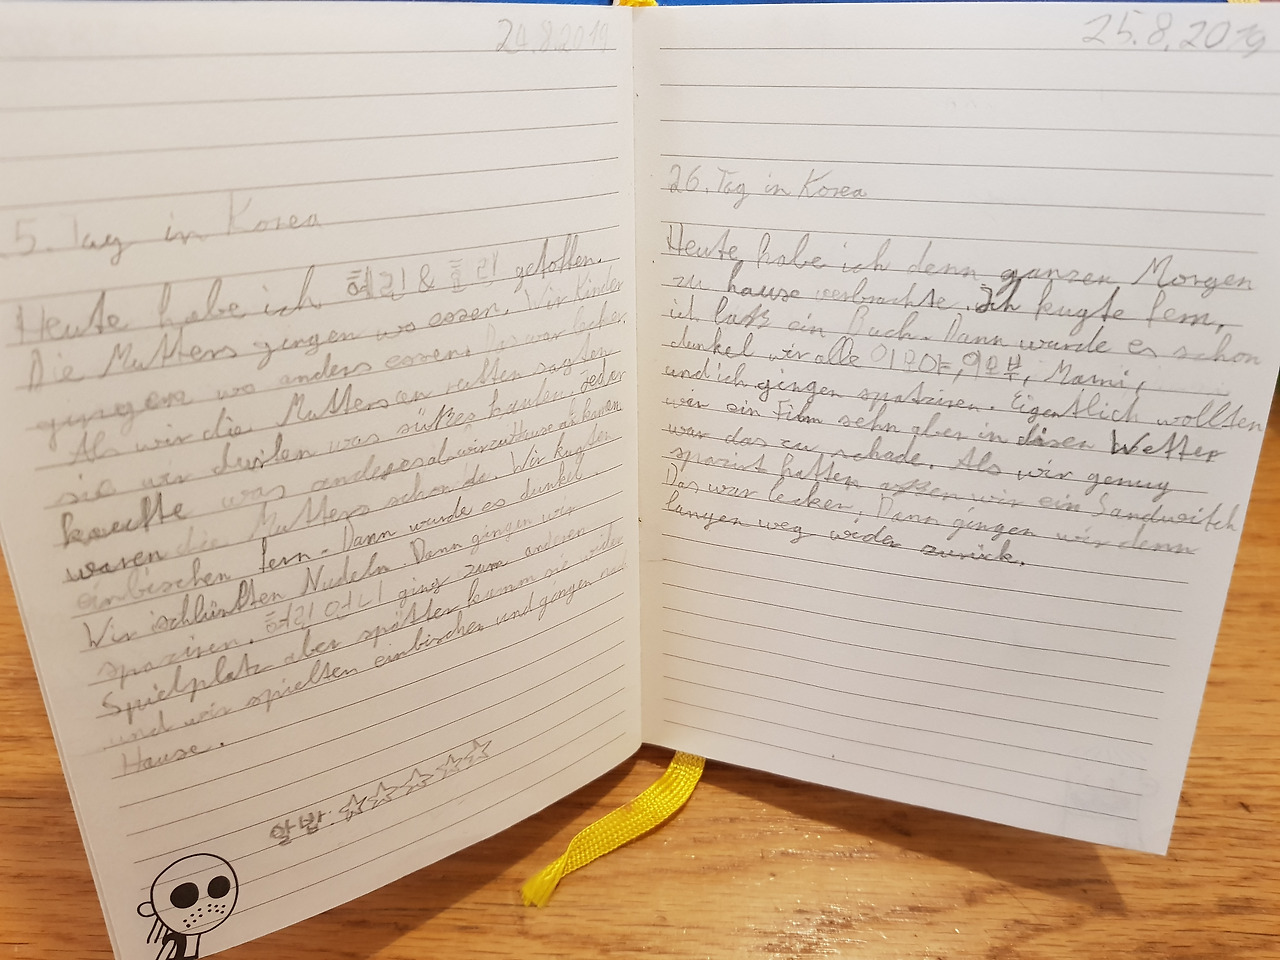 24.8.2019
5. Tag in Korea
Heute habe ich 혜린 & 효린 getoffen.
Die Mutters gingen wo essen. Wir Kinder
gingen wo anders essen. Das war lecker.
Als wir die Mutters an ruften sagten
sie wir durfen was süßes kaufen. Jeder
kaufte was anderes als wir zu Hause an kamen
waren die Mutters schon da. Wir kugten
einbischen fern. Dann wurde es dunkel
Wir schlürften Nudeln. Dann gingen wir
spaziren. 혜린언니 ging zum anderen
Spielplatz aber spötter kamm sie wider
und wir spielten einbischen und gingen nach
Hause.
알밥: ☆☆☆☆☆
25.8.2019
26. Tag in Korea
Heute habe ich denn ganzen Morgen
zu hause verbrachte. Ich kugte fern,
ich laß ein Buch. Dann wurde es schon
dunkel wir alle 이모야, 이모부, Mami,
und ich gingen spatziren. Eigentlich wollten
wir ein Film sehn aber in disen Wetter
war das zu schade. Als wir genug
spazirt hatten assen wir ein Sandwitch
Das war lecker. Dann gingen wir denn
langen weg wider zurück.